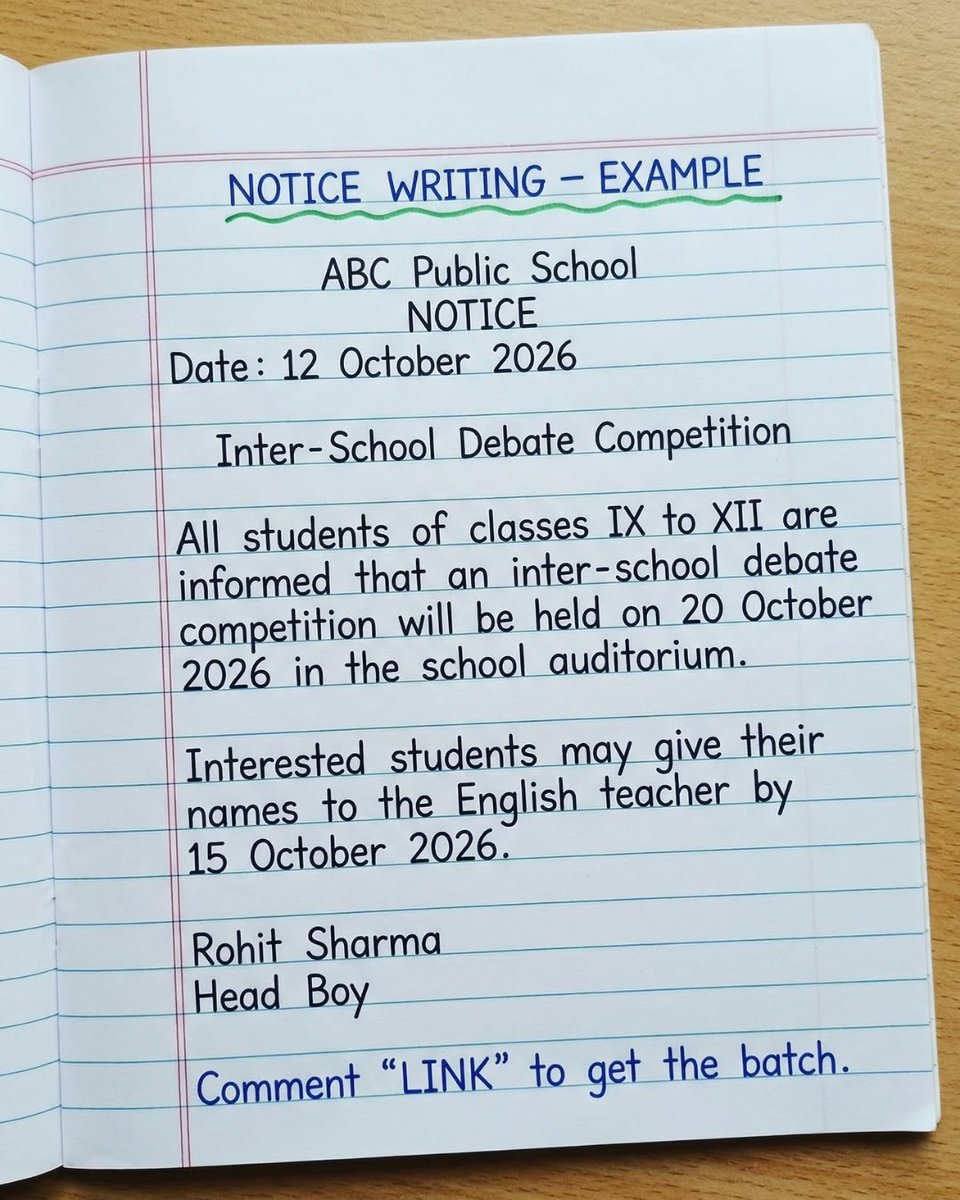 NOTICE WRITING – EXAMPLE
ABC Public School
NOTICE
Date: 12 October 2026
Inter-School Debate Competition
All students of classes IX to XII are
informed that an inter-school debate
competition will be held on 20 October
2026 in the school auditorium.
Interested students may give their
names to the English teacher by
15 October 2026.
Rohit Sharma
Head Boy
Comment “LINK” to get the batch.